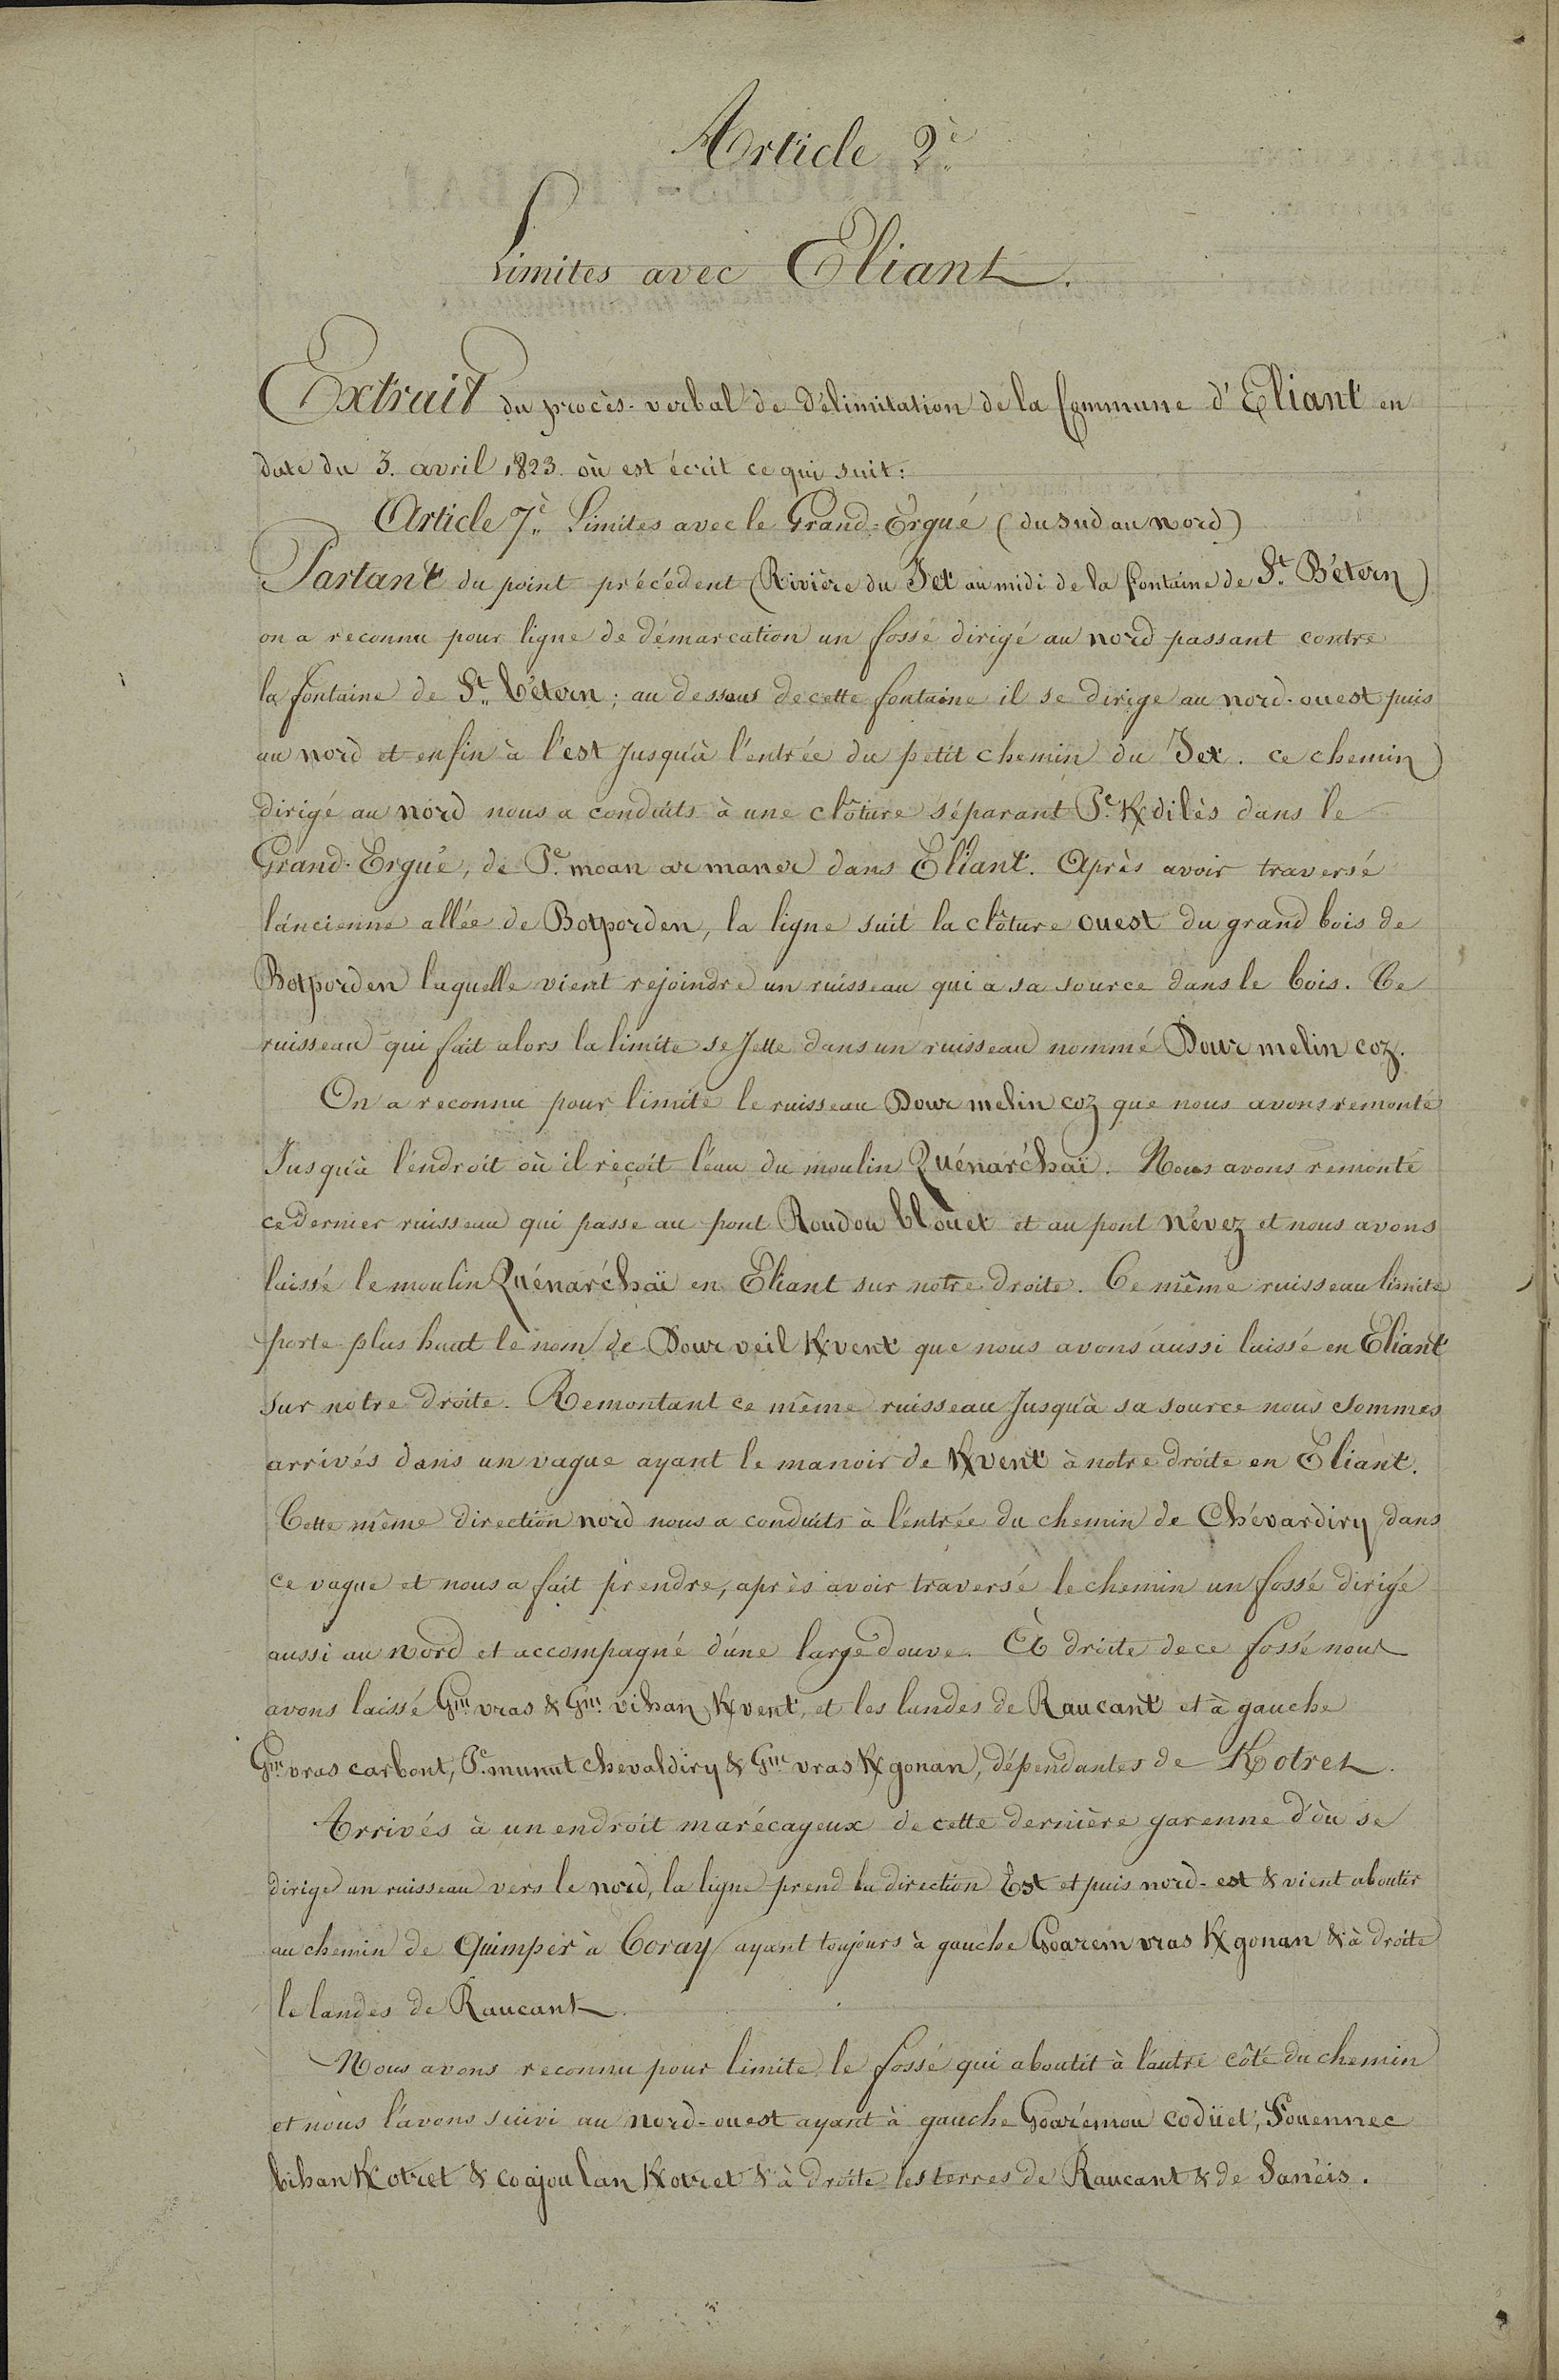 Article 2è
Limites avec Eliant.
Extrait du procès-verbal de délimitation de la Commune d'Eliant en
date du 3. avril 1823. où est écrit ce qui suit:
Article 7è. Limites avec le Grand-Ergué (du sud au nord)
Partant du point précédent (Rivière du Jet au midi de la fontaine de St. Bétern)
on a reconnu pour ligne de démarcation un fossé dirigé au nord passant contre
la fontaine de St. bétern; au dessous de cette fontaine il se dirige au nord-ouest puis
au nord et enfin à l'est Jusqu'à l'entrée du petit chemin du Jet. ce chemin
dirigé au nord nous a conduits à une clôture séparant Pc. Kdilès dans le
Grand-Ergué, de Pc. moan ar maner dans Eliant. Après avoir traversé
l'ancienne allée de Botporden, la ligne suit la clôture ouest du grand bois de
Botporden laquelle vient rejoindre un ruisseau qui a sa source dans le bois. Ce
ruisseau qui fait alors la limite se Jette dans un ruisseau nommé Dour melin coz.
On a reconnu pour limite le ruisseau Dour melin coz que nous avons remonté
Jusqu'à l'endroit où il reçoit l'eau du moulin Quénarc'haï. Nous avons remonté
ce dernier ruisseau qui passe au pont Roudou blouet et au pont névez et nous avons
laissé le moulin Quénarc'haï en Eliant sur notre droite. Ce même ruisseau limite
porte plus haut le nom de Dour veil Kvent que nous avons aussi laissé en Eliant
sur notre droite. Remontant ce même ruisseau Jusqu'à sa source nous sommes
arrivés dans un vague ayant le manoir de Kvent à notre droite en Eliant.
Cette même direction nord nous a conduits à l'entrée du chemin de Chévardiry dans
ce vague et nous a fait prendre, après avoir traversé le chemin un fossé dirigé
aussi au nord et accompagné d'une large douve. À droite de ce fossé nous
avons laissé Gm. vras & Gm. vihan Kvent, et les landes de Raucant et à gauche
Gm. vras carbont, Pc. munut chevaldiry & Gm. vras Kgonan, dépendantes de Kotret.
Arrivés à un endroit marécageux de cette dernière garenne d'où se
dirige un ruisseau vers le nord, la ligne prend la direction Est et puis nord-est & vient aboutir
au chemin de Quimper à Coray ayant toujours à gauche Goarem vras Kgonan & à droite
le landes de Raucant.
Nous avons reconnu pour limite le fossé qui aboutit à l'autre côté du chemin
et nous l'avons suivi au nord-ouest ayant à gauche Goarémou codüet, Fouennec
bihan Kotret & coajou lan Kotret & à droite les terres de Raucant & de Sanéis.